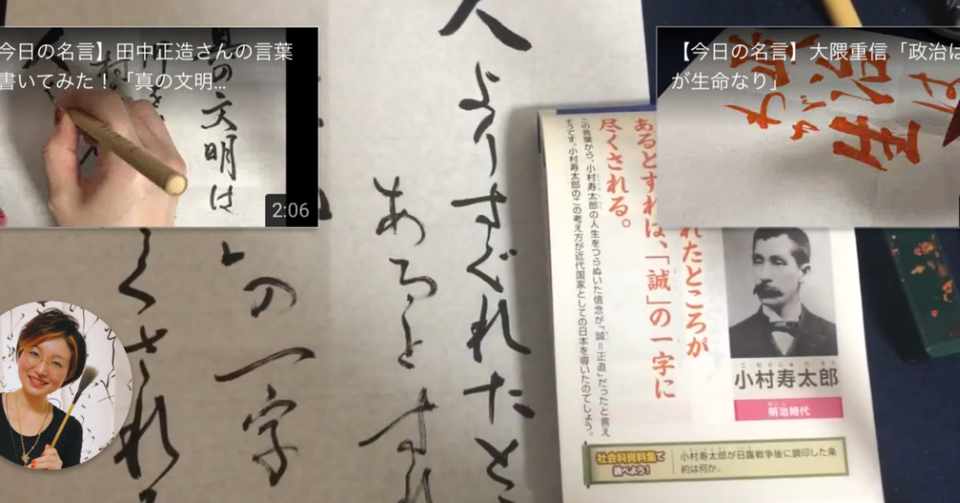 今日の名言】田中正造さんの言葉
書いてみた！「真の文明...
の文明は
2:06
【今日の名言】大隈重信「政治は
が生命なり」
人よりすぐれたと
あるとすれ
の一字
くされる
れたところが
あるとすれば、「誠」の一字に
尽くされる。
この言葉から、小村寿太郎の人生をつらぬいた信念が「誠＝正直」だったと言え
そうです。小村寿太郎のこの考え方が近代国家としての日本を導いたのでしょう。
小村寿太郎
明治時代
社会科資料集で
調べよう！
小村寿太郎が日露戦争後に調印した条
約は何か。